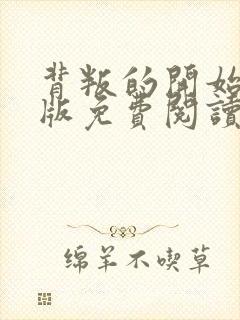 背叛的開始
版免費閱讀
绵羊不喫草